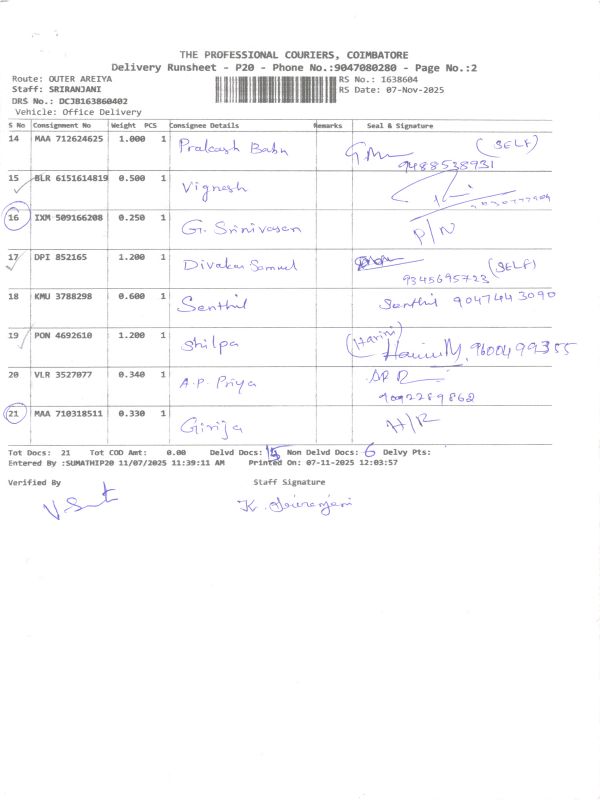 THE PROFESSIONAL COURIERS, COIMBATORE
Delivery Runsheet - P20 - Phone No.:9047080280 - Page No.:2
Route: OUTER AREIYA
RS No.: 1638604
Staff: SRIRANJANI
RS Date: 07-Nov-2025
DRS No.: DCJB163860402
Vehicle: Office Delivery
S No Consignment No Weight PCS Consignee Details Remarks Seal & Signature
14 MAA 712624625 1.000 1 Prakash Babu (SELF)
9488538931
15 BLR 6151614819 0.500 1 Vignesh
16 IXM 509166208 0.250 1 G. Srinivasan P/N
17 DPI 852165 1.200 1 Divakar Samuel (SELF)
9345695723
18 KMU 3788298 0.600 1 Senthil Senthil 9047443090
19 PON 4692610 1.200 1 Shilpa (Harini)
9600499355
20 VLR 3527077 0.340 1 A.P. Priya
9092289862
21 MAA 710318511 0.330 1 Girija H/R
Tot Docs: 21 Tot COD Amt: 0.00 Delvd Docs: 15 Non Delvd Docs: 6 Delvy Pts:
Entered By :SUMATHIP20 11/07/2025 11:39:11 AM Printed On: 07-11-2025 12:03:57
Verified By Staff Signature
K. Sriranjani